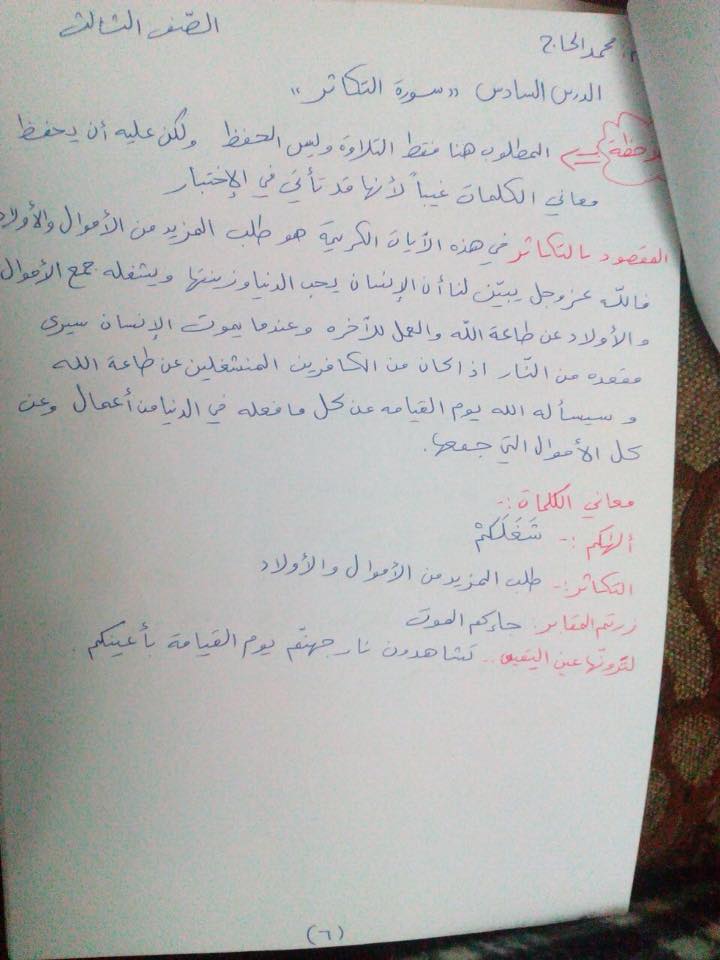 محمد الحاج
الصّف الثالث
الدرس السادس "سورة التكاثر"
المطلوب هنا فقط التلاوة وليس الحفظ ولكن عليه أن يحفظ
معاني الكلمات غيباً لأنها قد تأتي في الإختبار
المقصود بالتكاثر في هذه الآيات الكريمة هو طلب المزيد من الأموال والأولاد
فالله عز وجل يبيّن لنا أن الإنسان يحب الدنيا وزينتها ويشغله جمع الأموال
والأولاد عن طاعة الله والعمل للآخره وعندما يموت الإنسان سيرى
مقعده من النّار اذا كان من الكافرين المنشغلين عن طاعة الله
وسيسأله الله يوم القيامه عن كل ما فعله في الدنيا من أعمال وعن
كل الأموال التي جمعها.
معاني الكلمات :-
ألهكم :- شَغَلَكمْ
التكاثر :- طلب المزيد من الأموال والأولاد
زرتم المقابر : جاءكم الموت
لترونّها عين اليقين .. تشاهدون نار جهنّم يوم القيامة بأعينكم.
(٦)